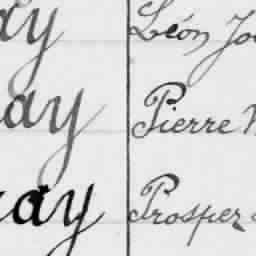 ay Léon Jo
ay Pierre
ay Prosper